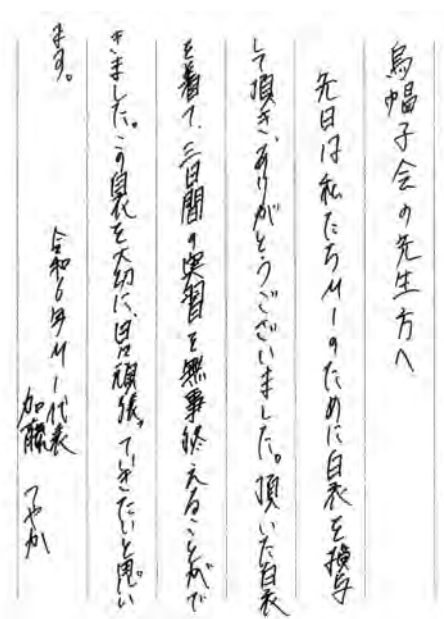 烏帽子会の先生方へ
先日は私たちM1のために白衣を授与
して頂き、ありがとうございました。頂いた白衣
を着て、三日間の実習を無事終えることがで
きました。この白衣を大切に、日々頑張っていきたいと思い
ます。
令和6年M1代表
加藤 つやか